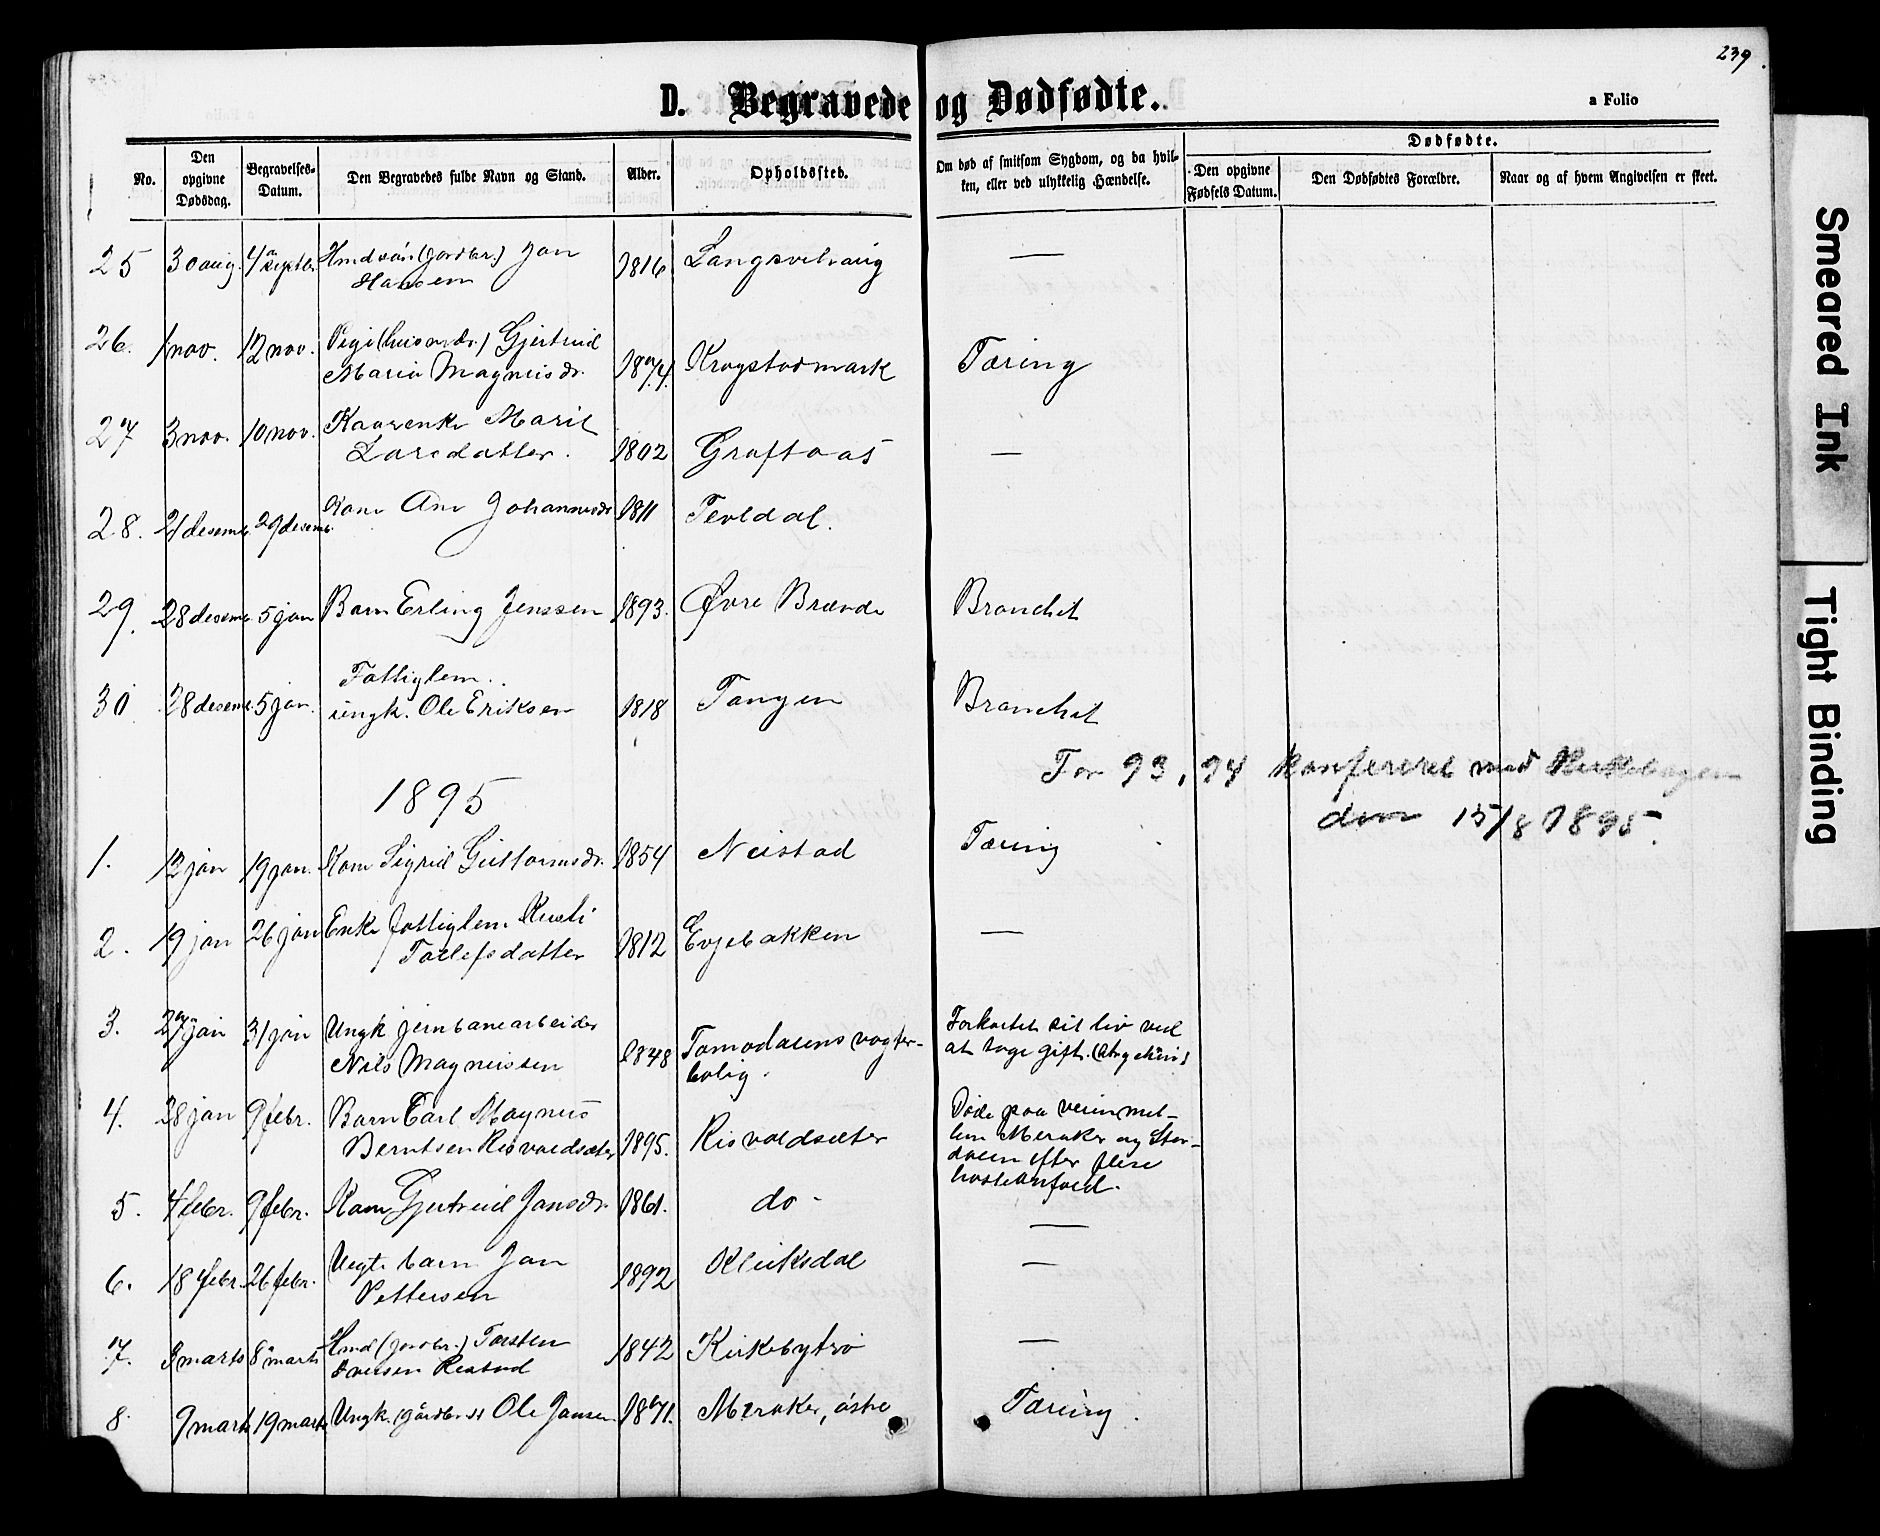 239.
D. Begravede og Dødfødte.
a Folio
No.
Den opgivne Dødsdag.
Begravelses-Datum.
Den Begravedes fulde Navn og Stand.
Alder.
Opholdssted.
Om død af smitsom Sygdom, og da hvil-
ken, eller ved ulykkelig Hændelse.
Dødfødte.
Den opgivne Fødsels Datum.
Den Dødfødtes Forældre.
Naar og af hvem Angivelsen er skeet.
25 30 aug. 4 septbr. (gardbr.) Jon 1816 Langsvehaug —
Hansen
26. 1 nov. 12 nov. Pige (husmdr.) Gjertrud
Maria Magnusdr. 1874. Krogstadmark Tæring
27 3 nov. 10 nov. Kaarenke Marit
Larsdatter. 1802 Graftaas —
28. 21 desemb. 29 desemb. Kone Ane Johannesdr 1811 Tevldal.
29. 28 desemb. 5 jan Barn Erling Jenssen 1893. Øvre Brænde Bronchit
Fattiglem.
30 28 desemb. 5 jan. ungk. Ole Eriksen 1818 Tangen Bronchit
For 93, 94 konfereret med Kirkebogen
1895
den 15/8 1895.
1. 12 jan 19 jan. Kone Sigrid Guttormsdr. 1854 Neistad Tæring
2. 19 jan 26 jan Enke fattiglem Kusti
Tollefsdatter 1812 Evjebakken —
3. 27 jan 31 jan Ungk jernbanearbeider
Nils Magnussen 1848 Tomodalens vogter-
bolig.
Forkortet sit liv ved
at tage gift. (stryknin)
4. 28 jan 9 febr. Barn Carl Magnus
Berntsen Risvoldsæter 1895. Risvoldsæter
Døde paa veien mel-
lem Meraker og Stør-
dalen efter flere
hosteanfald.
5. 4 febr. 9 febr. Kone Gjertrud Jonsdr. 1861. do - —
6. 18 febr. 26 febr. Uegte barn Jon
Pettersen 1892 Kluksdal —
7. 3 marts 8 marts (gardbr.) Torsten
Restad 1842 Kirkebytrø —
8. 9 marts 19 marts Ungk. Ole Jonsen 1871. Meraker, østre Tæring.
Smeared Ink
Tight Binding